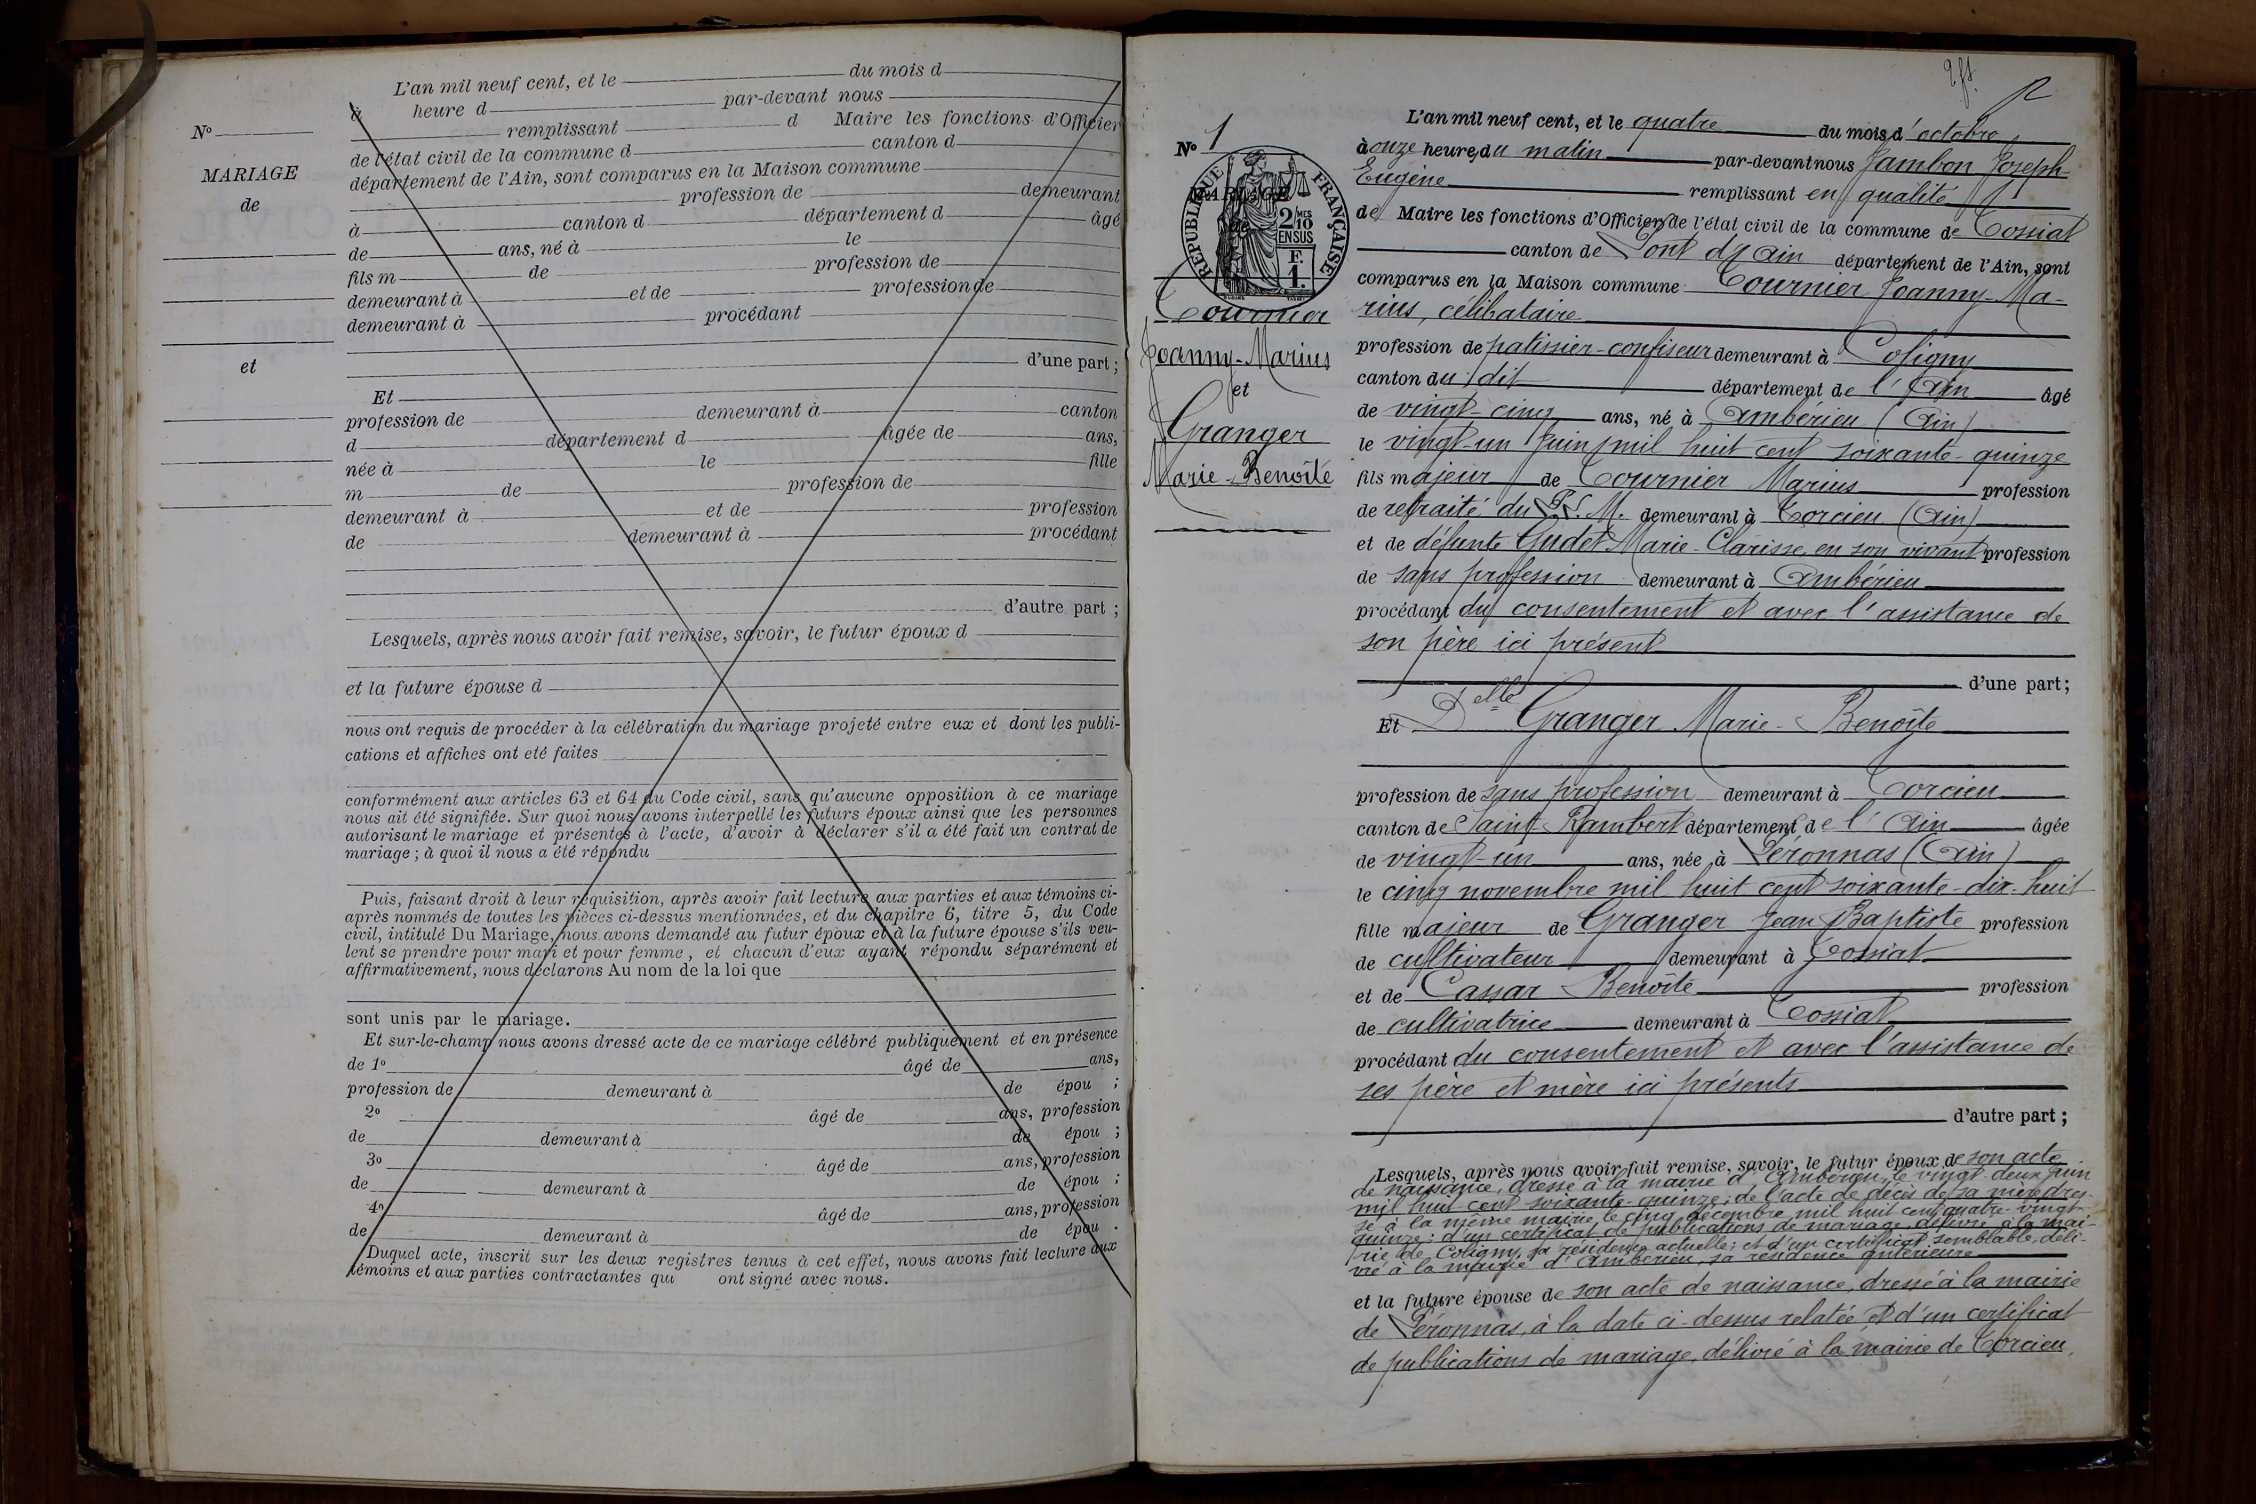 L'an mil neuf cent, et le du mois d
à heure d par-devant nous
remplissant d Maire les fonctions d'Officier
de l'état civil de la commune d canton d
département de l'Ain, sont comparus en la Maison commune
profession de demeurant
à canton d département d âgé
de ans, né à le
fils m de profession de
demeurant à et de profession de
demeurant à procédant
d'une part ;
Nº
MARIAGE
de
et
Et
profession de demeurant à canton
d département d âgée de ans,
née à le fille
m de profession de
demeurant à et de profession
de demeurant à procédant
d'autre part ;
Lesquels, après nous avoir fait remise, savoir, le futur époux d
et la future épouse d
nous ont requis de procéder à la célébration du mariage projeté entre eux et dont les publi-
cations et affiches ont eté faites
conformément aux articles 63 et 64 du Code civil, sans qu'aucune opposition à ce mariage
nous ait été signifiée. Sur quoi nous avons interpellé les futurs époux ainsi que les personnes
autorisant le mariage et présentes à l'acte, d'avoir à déclarer s'il a été fait un contrat de
mariage ; à quoi il nous a été répondu
Puis, faisant droit à leur réquisition, après avoir fait lecture aux parties et aux témoins ci-
après nommés de toutes les pièces ci-dessus mentionnées, et du chapitre 6, titre 5, du Code
civil, intitulé Du Mariage, nous avons demandé au futur époux et à la future épouse s'ils veu-
lent se prendre pour mari et pour femme, et chacun d'eux ayant répondu séparément et
affirmativement, nous déclarons Au nom de la loi que
sont unis par le mariage.
Et sur-le-champ nous avons dressé acte de ce mariage célébré publiquement et en présence
de 1º âgé de ans,
profession de demeurant à de épou ;
2º âgé de ans, profession
de demeurant à de épou ;
3º âgé de ans, profession
de demeurant à de épou ;
4º âgé de ans, profession
de demeurant à de épou .
Duquel acte, inscrit sur les deux registres tenus à cet effet, nous avons fait lecture aux
témoins et aux parties contractantes qui ont signé avec nous.
2
Nº 1
RÉPUBLIQUE FRANÇAISE
MARIAGE
de
2 MES 10
EN SUS
F.
1.
Tournier
Joanny-Marius
et
Granger
Marie-Benoîte
L'an mil neuf cent, et le quatre du mois d'octobre
à onze heures du matin par-devant nous Jambon Joseph-
Eugène remplissant en qualité
de Maire les fonctions d'Officier de l'état civil de la commune de Tossiat
canton de Pont d'Ain département de l'Ain, sont
comparus en la Maison commune Tournier Joanny-Ma-
rius, célibataire
profession de patissier-confiseur demeurant à Coligny
canton du dit département de l'Ain âgé
de vingt-cinq ans, né à Ambérieu (Ain)
le vingt-un Juin mil huit cent soixante-quinze
fils majeur de Tournier Marius profession
de retraité du P.L.M. demeurant à Torcieu (Ain)
et de défunte Gudet Marie-Clarisse, en son vivant profession
de sans profession demeurant à Ambérieu
procédant du consentement et avec l'assistance de
son père ici présent
d'une part ;
Et Delle Granger Marie-Benoîte
profession de sans profession demeurant à Torcieu
canton de Saint-Rambert département de l'Ain âgée
de vingt-un ans, née à Péronnas (Ain)
le cinq novembre mil huit cent soixante-dix-huit
fille majeur de Granger Jean Baptiste profession
de cultivateur demeurant à Tossiat
et de Cassar Benoîte profession
de cultivatrice demeurant à Tossiat
procédant du consentement et avec l'assistance de
ses père et mère ici présents
d'autre part ;
Lesquels, après nous avoir fait remise, savoir, le futur époux de son acte
de naissance, dressé à la mairie d'Ambérieu, le vingt-deux Juin
mil huit cent soixante-quinze ; de l'acte de décès de sa mère, dres-
sé à la même mairie, le cinq décembre mil huit cent quatre-vingt-
quinze ; d'un certificat de publications de mariage, délivré à la mai-
rie de Coligny, sa résidence actuelle ; et d'un certificat semblable, déli-
vré à la mairie d'Ambérieu, sa résidence antérieure
et la future épouse de son acte de naissance, dressé à la mairie
de Péronnas, à la date ci-dessus relatée et d'un certificat
de publications de mariage, délivré à la mairie de Torcieu,